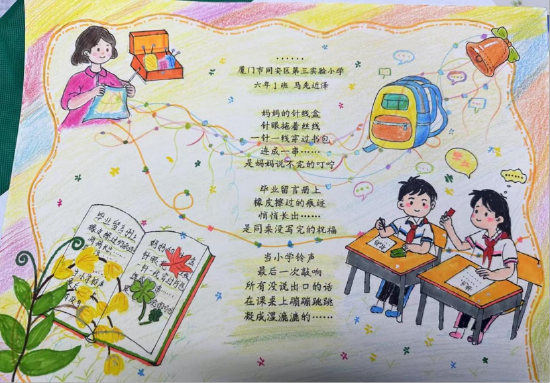 ……
厦门市同安区第三实验小学
六年1班 马走近泽
妈妈的针线盒
针眼拖着丝线
一针一线穿过书包
连成一串……
是妈妈说不完的叮咛
毕业留言册上
橡皮擦过的痕迹
悄悄长出……
是同桌没写完的祝福
当小学铃声
最后一次敲响
所有没说出口的话
在课桌上蹦蹦跳跳
凝成湿漉漉的……
毕业留言册上